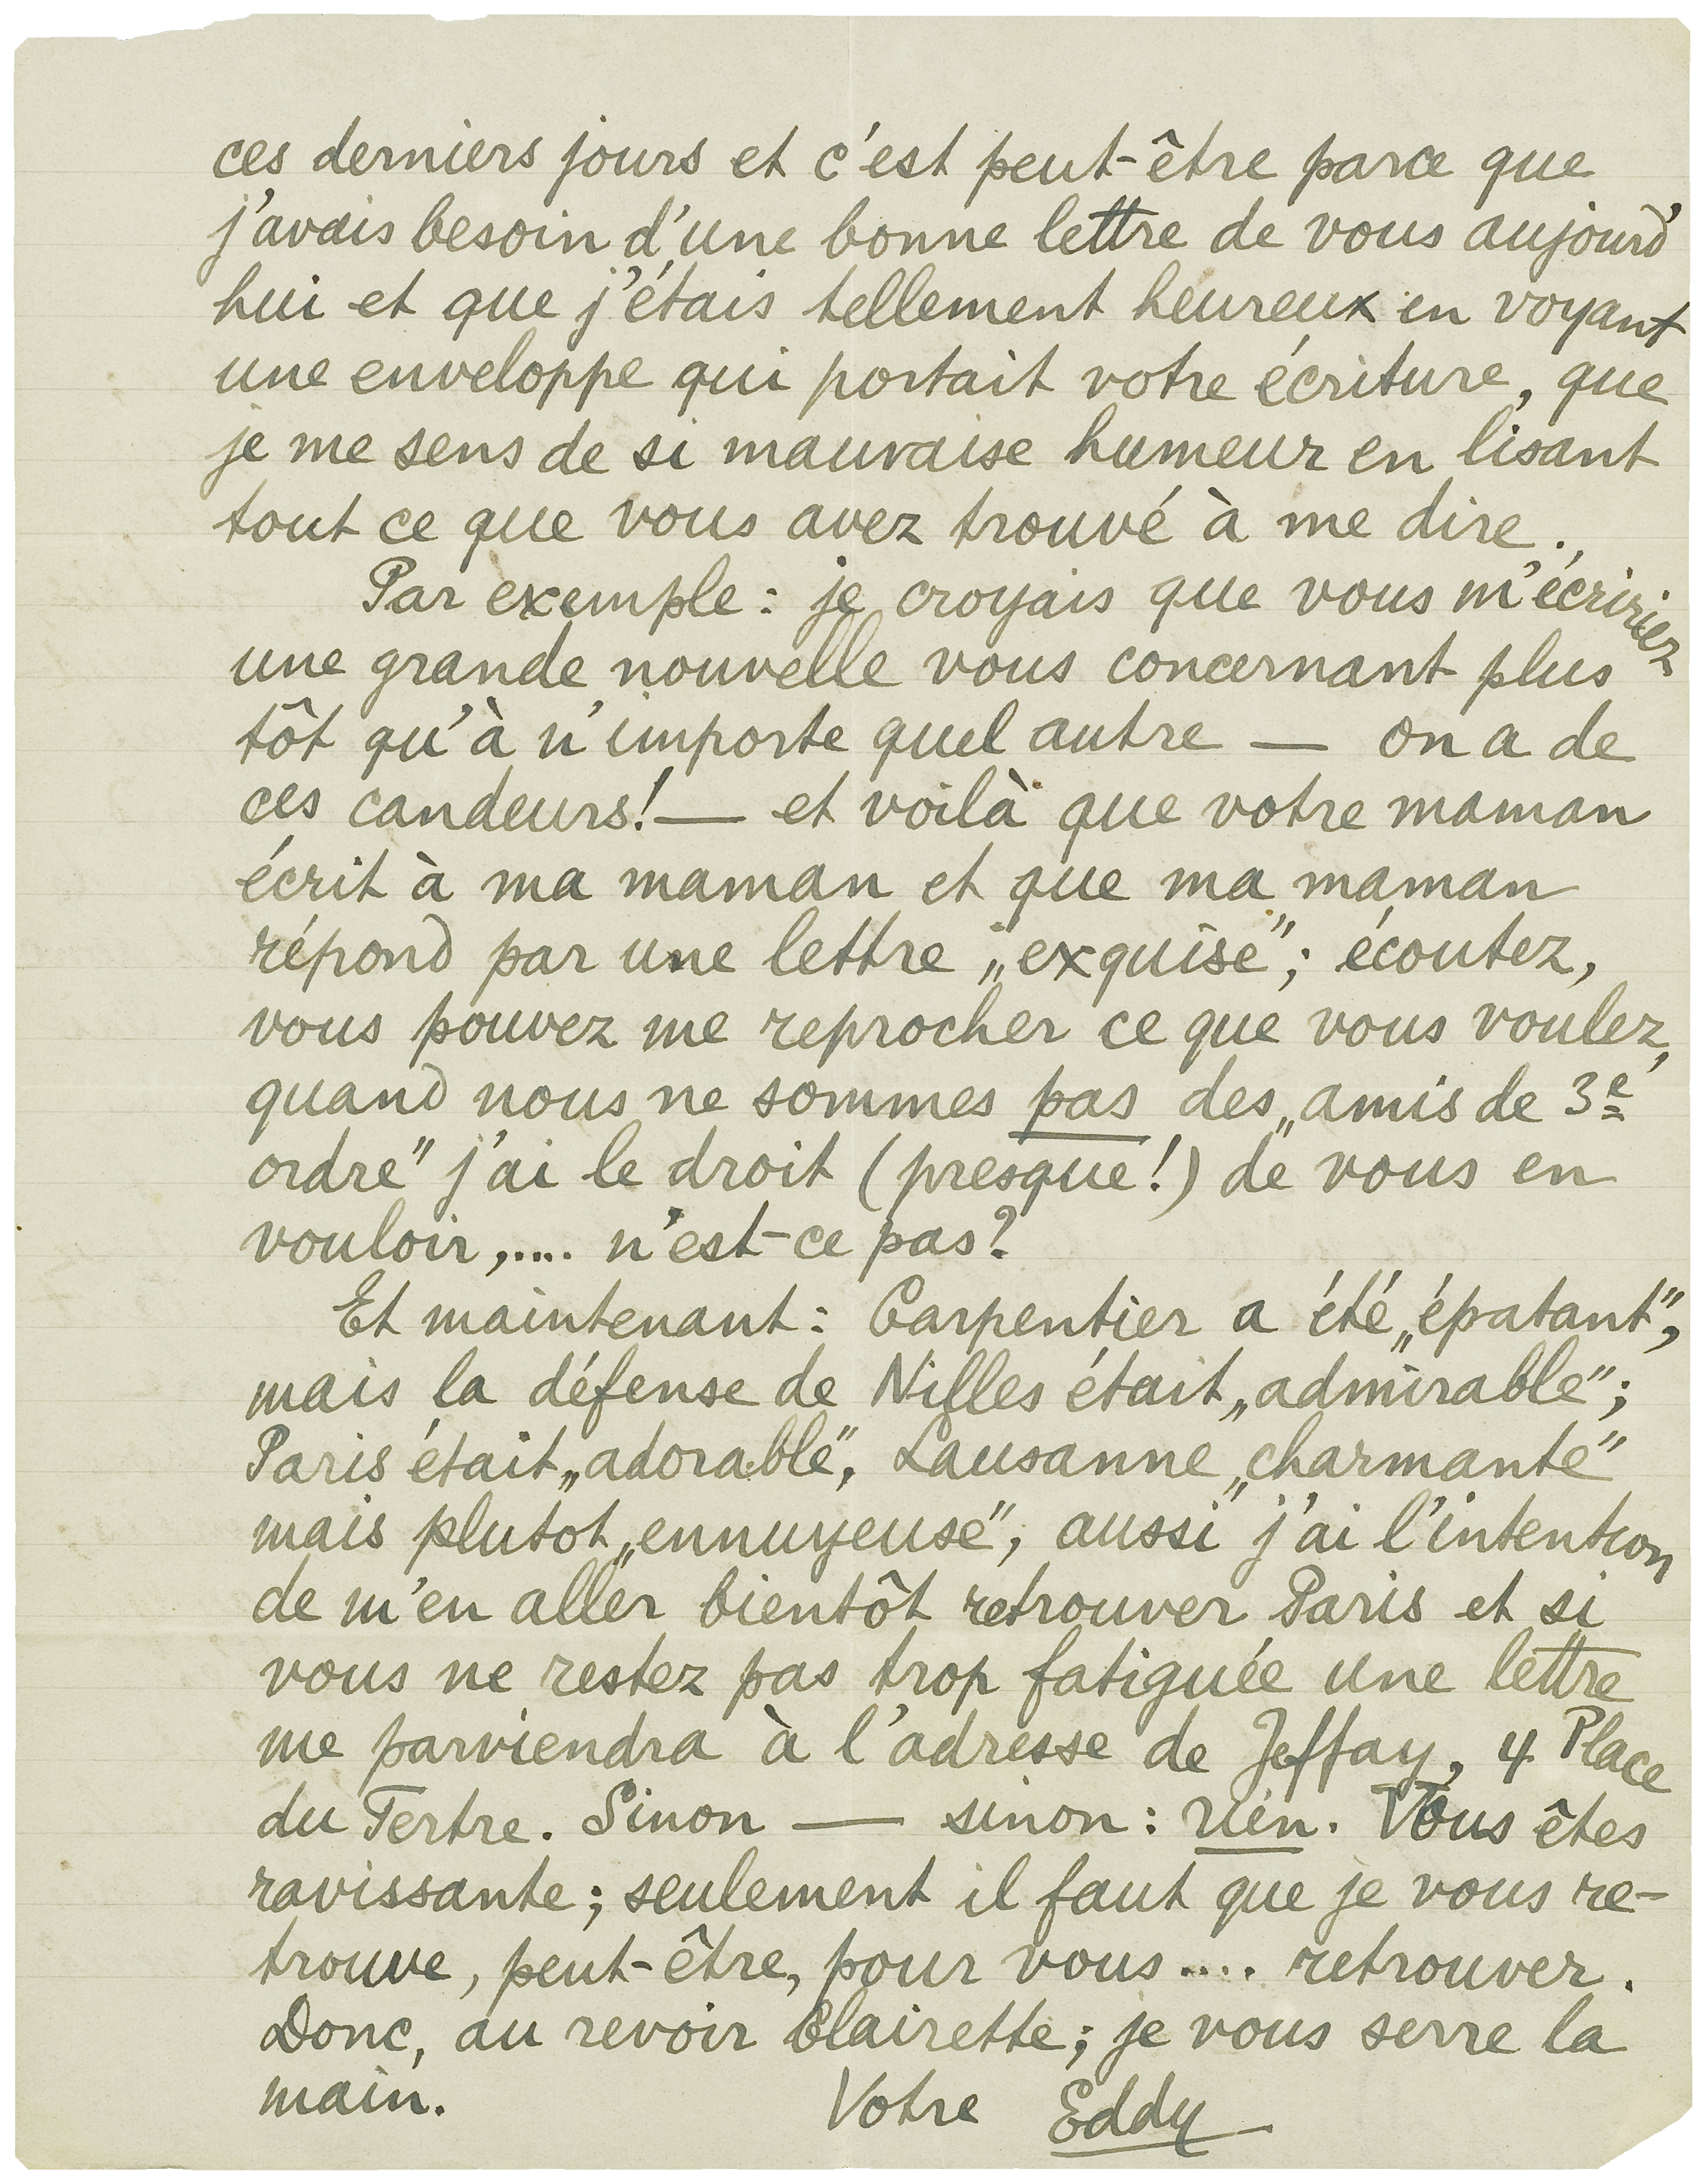 ces derniers jours et c'est peut-être parce que
j'avais besoin d'une bonne lettre de vous aujourd'
hui et que j'étais tellement heureux en voyant
une enveloppe qui portait votre écriture, que
je me sens de si mauvaise humeur en lisant
tout ce que vous avez trouvé à me dire.
Par exemple : je croyais que vous m'écririez
une grande nouvelle vous concernant plus
tôt qu'à n'importe quel autre — on a de
ces candeurs! — et voilà que votre maman
écrit à ma maman et que ma maman
répond par une lettre „exquise"; écoutez,
vous pouvez me reprocher ce que vous voulez,
quand nous ne sommes pas des „amis de 3e
ordre" j'ai le droit (presque!) de vous en
vouloir,.... n'est-ce pas?
Et maintenant : Carpentier a été „épatant",
mais la défense de Nilles était „admirable";
Paris était „adorable", Lausanne „charmante"
mais plutot „ennuyeuse", aussi j'ai l'intention
de m'en aller bientôt retrouver Paris et si
vous ne restez pas trop fatiguée une lettre
me parviendra à l'adresse de Jeffay, 4 Place
du Tertre. Sinon — sinon : rien. Vous êtes
ravissante; seulement il faut que je vous re-
trouve, peut-être, pour vous .... retrouver.
Donc, au revoir Clairette; je vous serre la
main. Votre Eddy